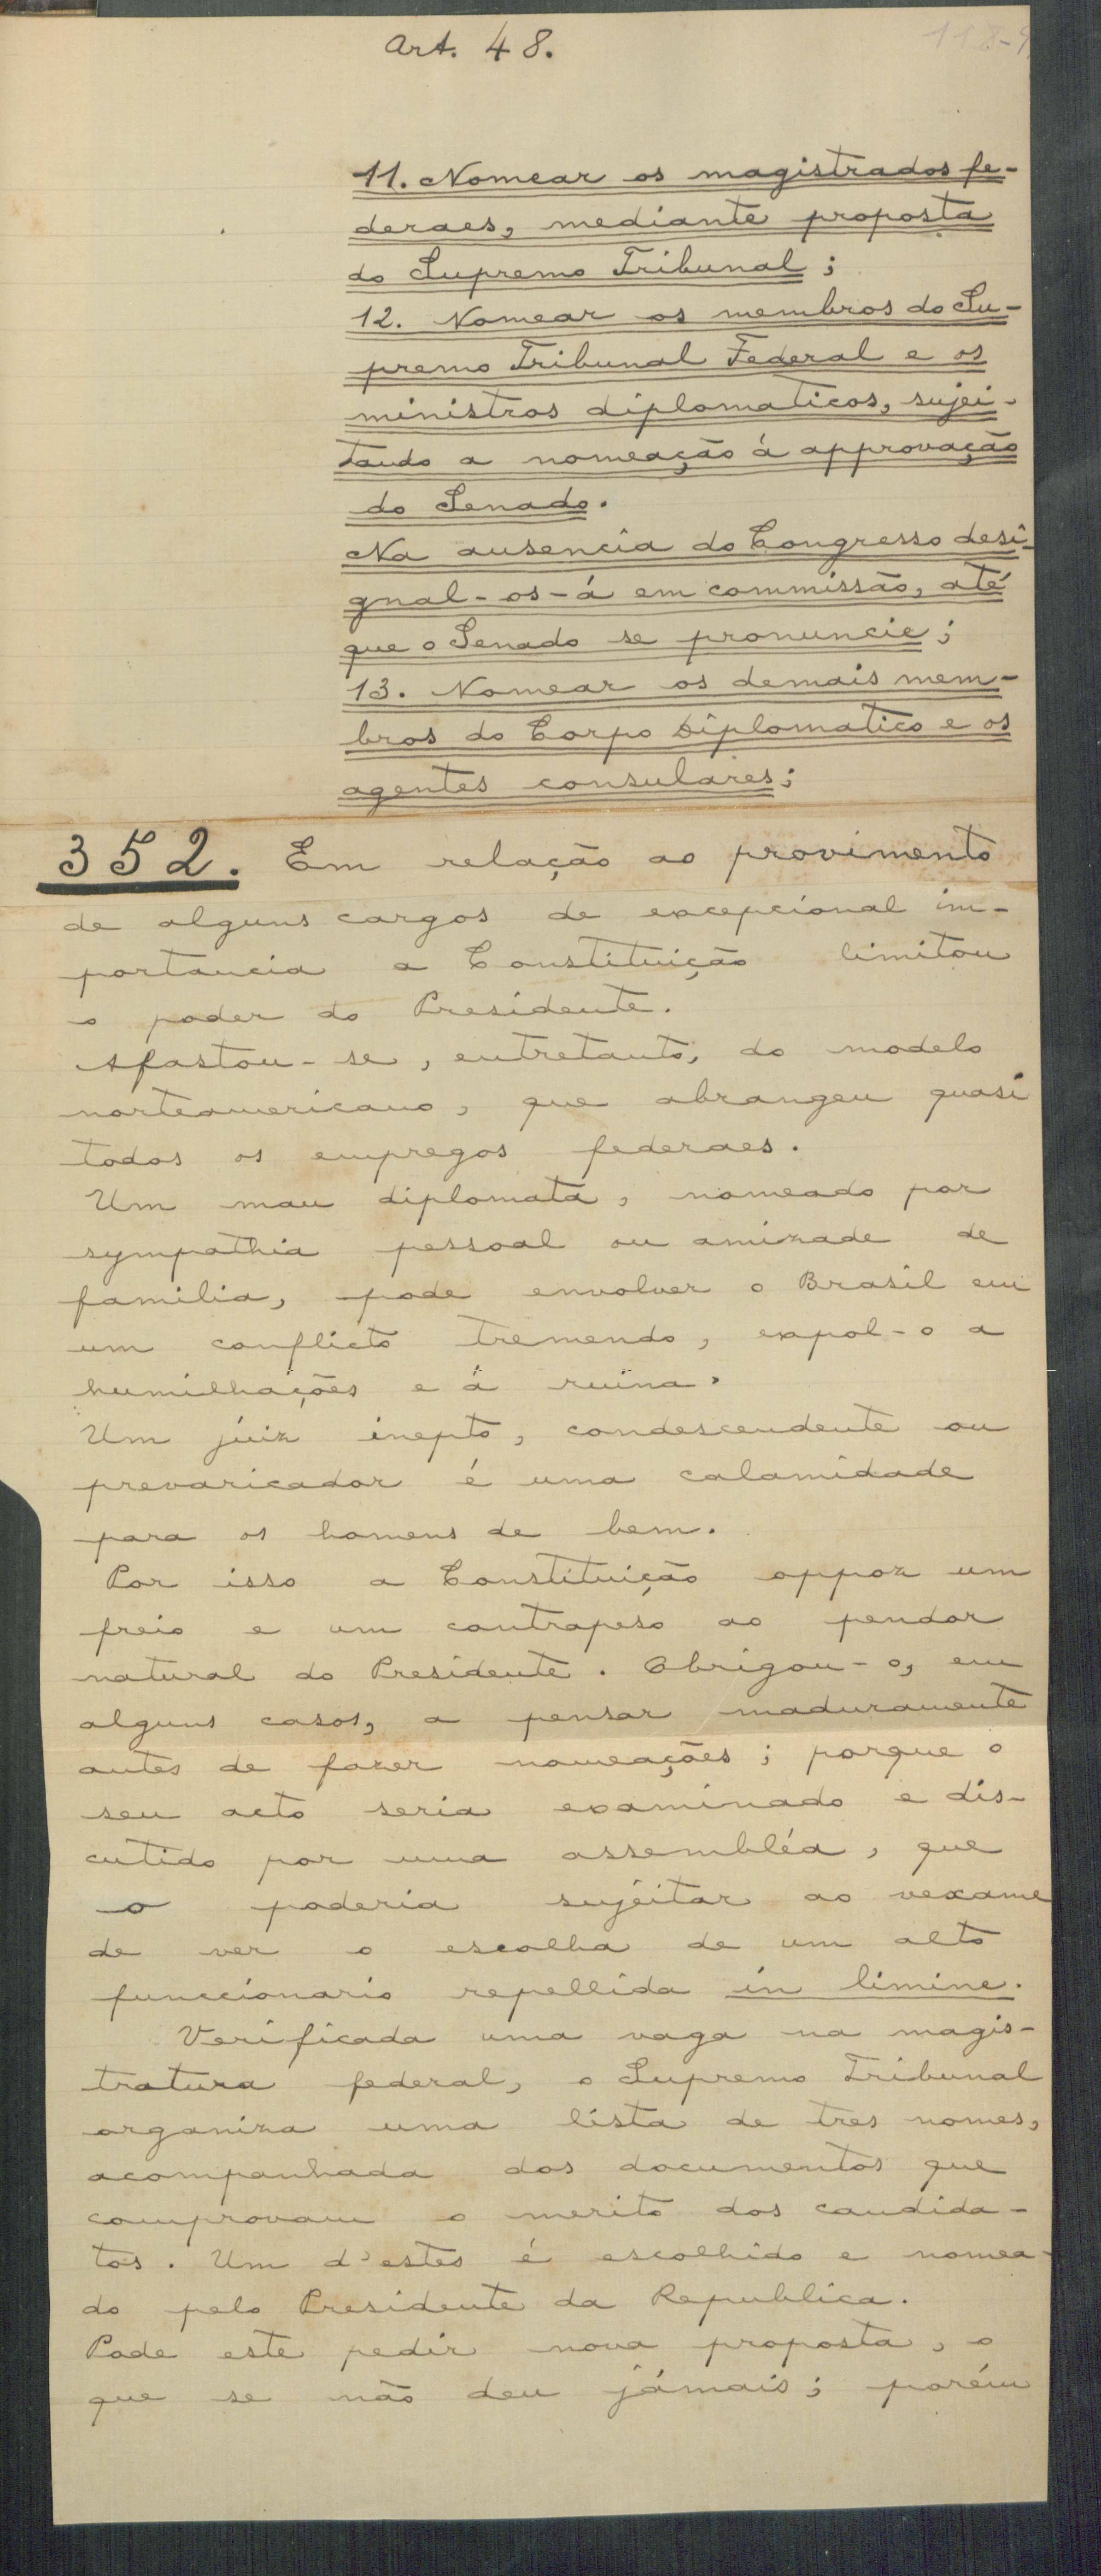 Art. 48.
118-9
11. Nomear os magistrados fe-
deraes, mediante proposta
do Supremo Tribunal;
12. Nomear os membros do Su-
premo Tribunal Federal e os
ministros diplomaticos, sujei-
tando a nomeação á approvação
do Senado.
Na ausencia do Congresso desi-
gnal-os-á em commissão, até
que o Senado se pronuncie;
13. Nomear os demais mem-
bros do Corpo Diplomatico e os
agentes consulares;
352. Em relação ao provimento
de alguns cargos de excepcional im-
portancia a Constituição limitou
o poder do Presidente.
Afastou-se, entretanto, do modelo
norteamericano, que abrangeu quasi
todos os empregos federaes.
Um mau diplomata, nomeado por
sympathia pessoal ou amizade de
familia, pode envolver o Brasil em
um conflicto tremendo, expol-o a
humilhações e á ruina.
Um juiz inepto, condescendente ou
prevaricador é uma calamidade
para os homens de bem.
Por isso a Constituição oppoz um
freio e um contrapeso ao pendor
natural do Presidente. Obrigou-o, em
alguns casos, a pensar maduramente
antes de fazer nomeações; porque o
seu acto seria examinado e dis-
cutido por uma assembléa, que
o poderia sujeitar ao vexame
de ver o escolha de um alto
funccionario repellida in limine.
Verificada uma vaga na magis-
tratura federal, o Supremo Tribunal
organiza uma lista de tres nomes,
acompanhada dos documentos que
comprovam o merito dos candida-
tos. Um d'estes é escolhido e nomea-
do pelo Presidente da Republica.
Pode este pedir nova proposta, o
que se não deu jámais; porém